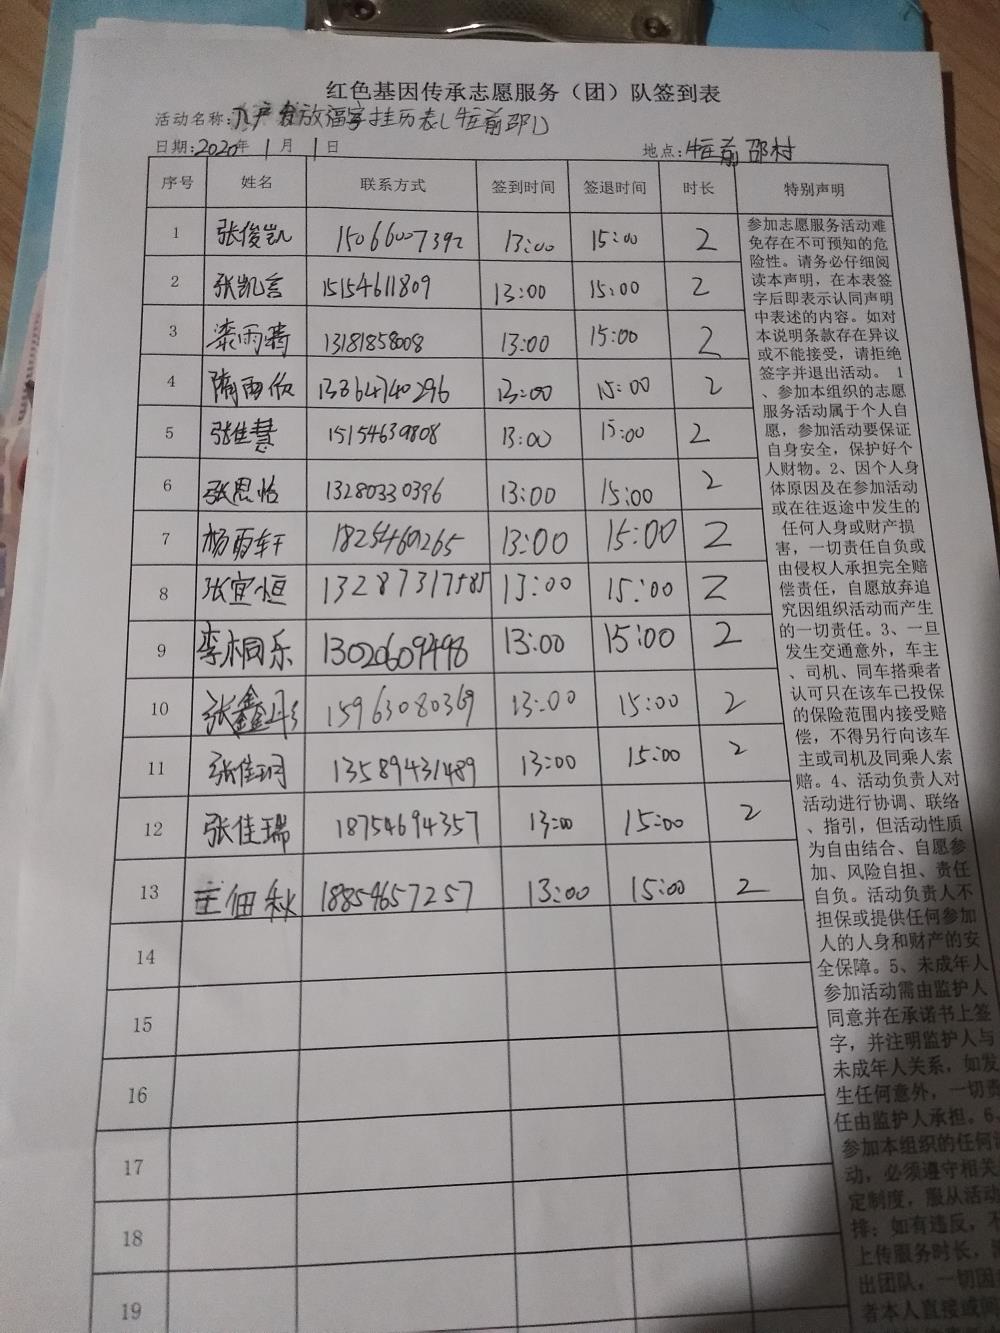 红色基因传承志愿服务（团）队签到表
活动名称：入户发放福字挂历表（牛庄前邵）
日期：2020年 1月 1日 地点：牛庄前邵村
序号 姓名 联系方式 签到时间 签退时间 时长 特别声明
1 张俊凯 15066007392 13:00 15:00 2
2 张凯言 15154611809 13:00 15:00 2
3 栾雨 13181858008 13:00 15:00 2
4 隋雨欣 13364740296 13:00 15:00 2
5 张佳慧 15154639808 13:00 15:00 2
6 张恩怡 13280330396 13:00 15:00 2
7 杨雨轩 18254460265 13:00 15:00 2
8 张宜恒 13287317585 13:00 15:00 2
9 李桐乐 13020609498 13:00 15:00 2
10 张鑫 15963080369 13:00 15:00 2
11 张佳珂 13589431489 13:00 15:00 2
12 张佳瑞 18754694357 13:00 15:00 2
13 王佃秋 18854657257 13:00 15:00 2
14
15
16
17
18
19
参加志愿服务活动难
免存在不可预知的危
险性。请务必仔细阅
读本声明，在本表签
字后即表示认同声明
中表述的内容。如对
本说明条款存在异议
或不能接受，请拒绝
签字并退出活动。 1
、参加本组织的志愿
服务活动属于个人自
愿，参加活动要保证
自身安全，保护好个
人财物。2、因个人身
体原因及在参加活动
或在往返途中发生的
任何人身或财产损
害，一切责任自负或
由侵权人承担完全赔
偿责任，自愿放弃追
究因组织活动而产生
的一切责任。3、一旦
发生交通意外，车主
、司机、同车搭乘者
认可只在该车已投保
的保险范围内接受赔
偿，不得另行向该车
主或司机及同乘人索
赔。4、活动负责人对
活动进行协调、联络
、指引，但活动性质
为自由结合、自愿参
加、风险自担、责任
自负。活动负责人不
担保或提供任何参加
人的人身和财产的安
全保障。5、未成年人
参加活动需由监护人
同意并在承诺书上签
字，并注明监护人与
未成年人关系，如发
生任何意外，一切责
任由监护人承担。6、
参加本组织的任何
动，必须遵守相关
定制度，服从活动
排；如有违反，不
上传服务时长，
出团队，一切因
者本人直接或间